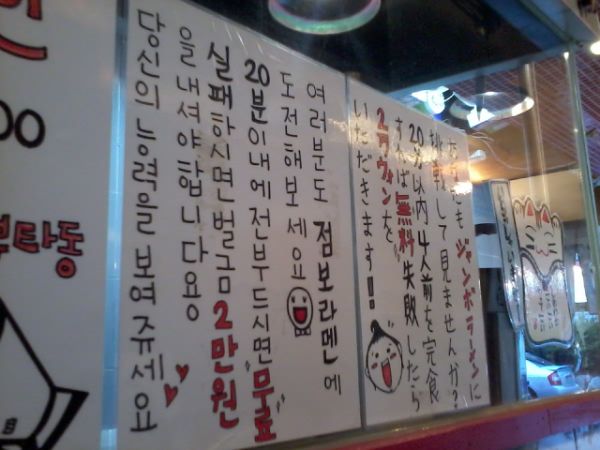 여러분도 점보라멘에
도전해보세요
20분이내에전부드시면무료
실패하시면벌금2만원
을내셔야합니다용
당신의능력을보여쥬세요
ジャンボラーメンに
挑戦して見ませんか?
20分以内4人前を完食
すれば無料失敗したら
2万ウォンを
いただきます!!
00
타동